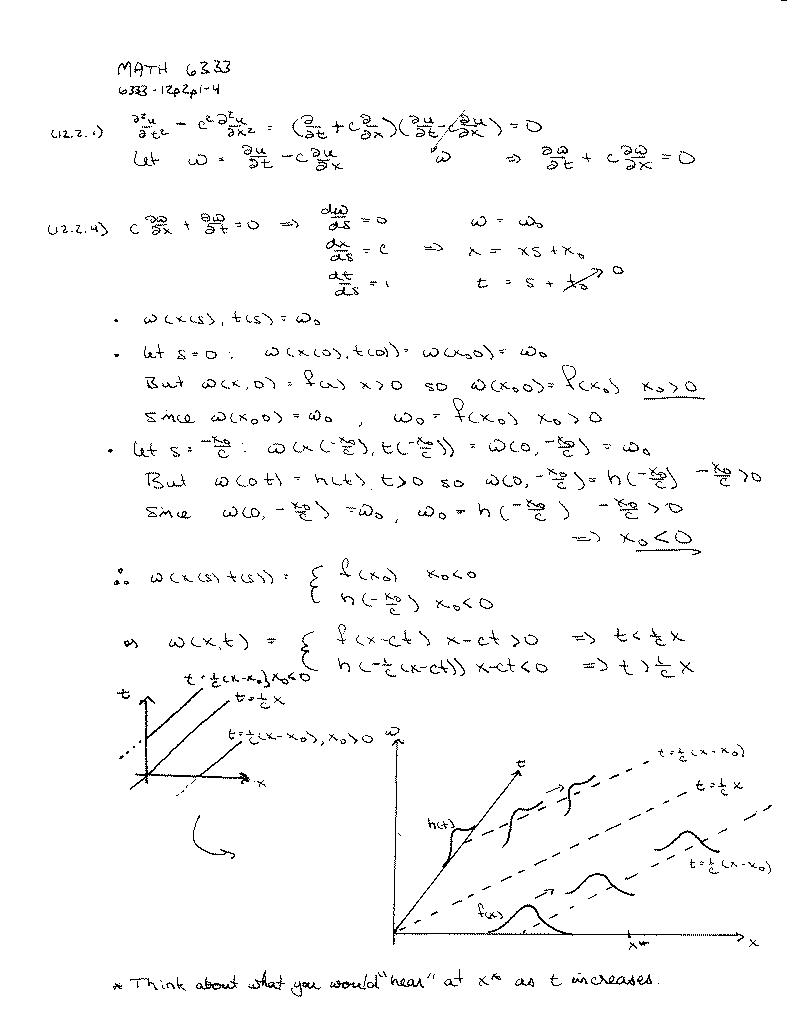 MATH 6333
6333-12p2p1-4
(12.2.1) ∂²u/∂t² - c² ∂²u/∂x² = (∂/∂t + c ∂/∂x)(∂u/∂t - c ∂u/∂x) = 0
Let ω = ∂u/∂t - c ∂u/∂x ω ⇒ ∂ω/∂t + c ∂ω/∂x = 0
(12.2.4) c ∂ω/∂x + ∂ω/∂t = 0 ⇒ dω/ds = 0 ω = ω₀
dx/ds = c ⇒ x = xs + x₀
dt/ds = 1 t = s + t₀ 0
• ω(x(s), t(s)) = ω₀
• Let s=0: ω(x(0), t(0)) = ω(x₀,0) = ω₀
But ω(x,0) = f(x) x>0 so ω(x₀,0) = f(x₀) x₀>0
Since ω(x₀,0) = ω₀, ω₀ = f(x₀) x₀>0
• Let s = -x₀/c: ω(x(-x₀/c), t(-x₀/c)) = ω(0, -x₀/c) = ω₀
But ω(0,t) = h(t), t>0 so ω(0, -x₀/c) = h(-x₀/c) -x₀/c >0
Since ω(0, -x₀/c) = ω₀, ω₀ = h(-x₀/c) -x₀/c >0
⇒ x₀<0
∴ ω(x(s), t(s)) = { f(x₀) x₀<0
h(-x₀/c) x₀<0
or ω(x,t) = { f(x-ct) x-ct>0 ⇒ t<1/c x
h(-1/c(x-ct)) x-ct<0 ⇒ t>1/c x
t=1/c(x-x₀), x₀<0
t
t=1/c x
t=1/c(x-x₀), x₀>0
x
ω
t
t=1/c(x-x₀)
t=1/c x
h(t)
t=1/c(x-x₀)
f(x)
x*
x
* Think about what you would "hear" at x* as t increases.